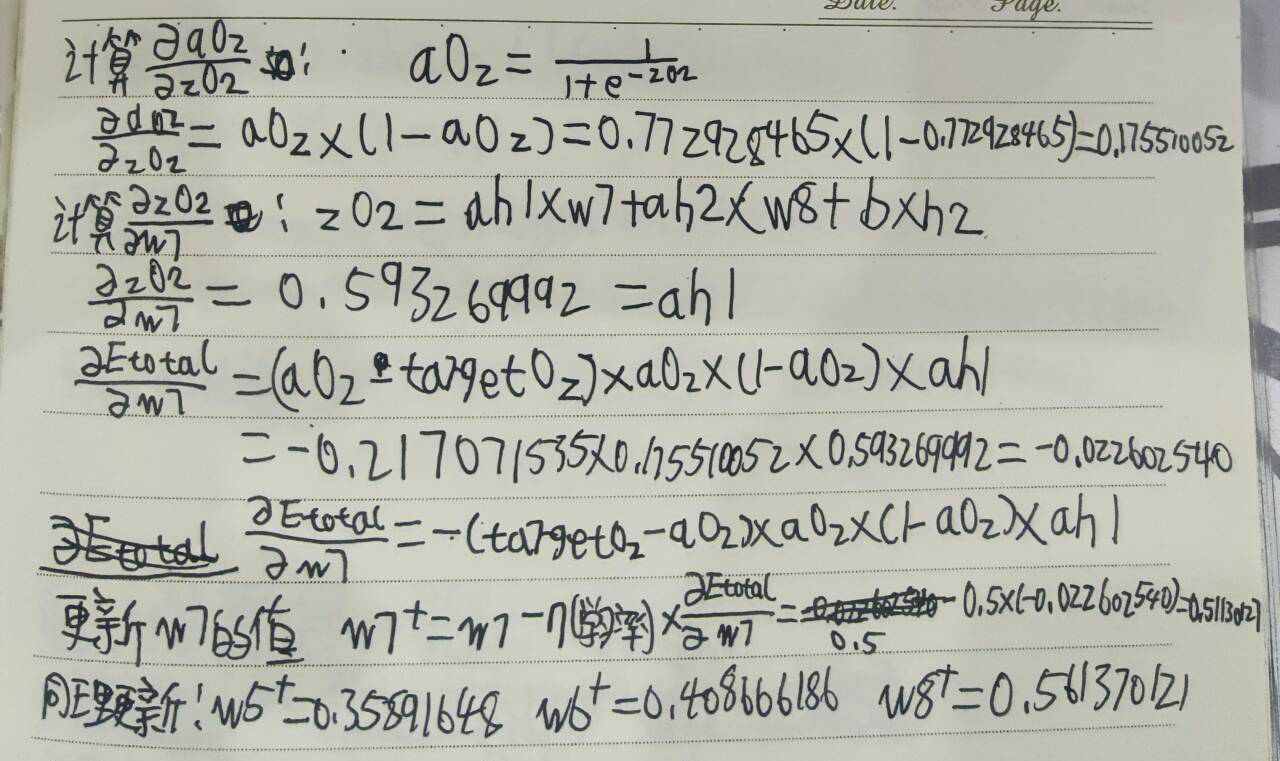 Date. Page.
计算 ∂aO2/∂zO2 : aO2 = 1/(1+e^-zO2)
∂aO2/∂zO2 = aO2×(1-aO2)=0.772928465×(1-0.772928465)=0.175510052
计算 ∂zO2/∂w7 : zO2 = ah1×w7+ah2×w8+b×h2
∂zO2/∂w7 = 0.593269992 = ah1
∂Etotal/∂w7 = (aO2 - targetO2)×aO2×(1-aO2)×ah1
= -0.217071535×0.175510052×0.593269992 = -0.022602540
∂Etotal ∂Etotal/∂w7 = -(targetO2-aO2)×aO2×(1-aO2)×ah1
更新w7的值 w7⁺=w7-η(学习率)×∂Etotal/∂w7 = 0.5 - 0.5×(-0.022602540)=0.51130127
同理更新: w5⁺=0.35891648 w6⁺=0.408666186 w8⁺=0.561370121